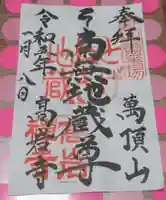 奉拝
萬頂山
南無地蔵尊
高岩寺
令和年
月八日